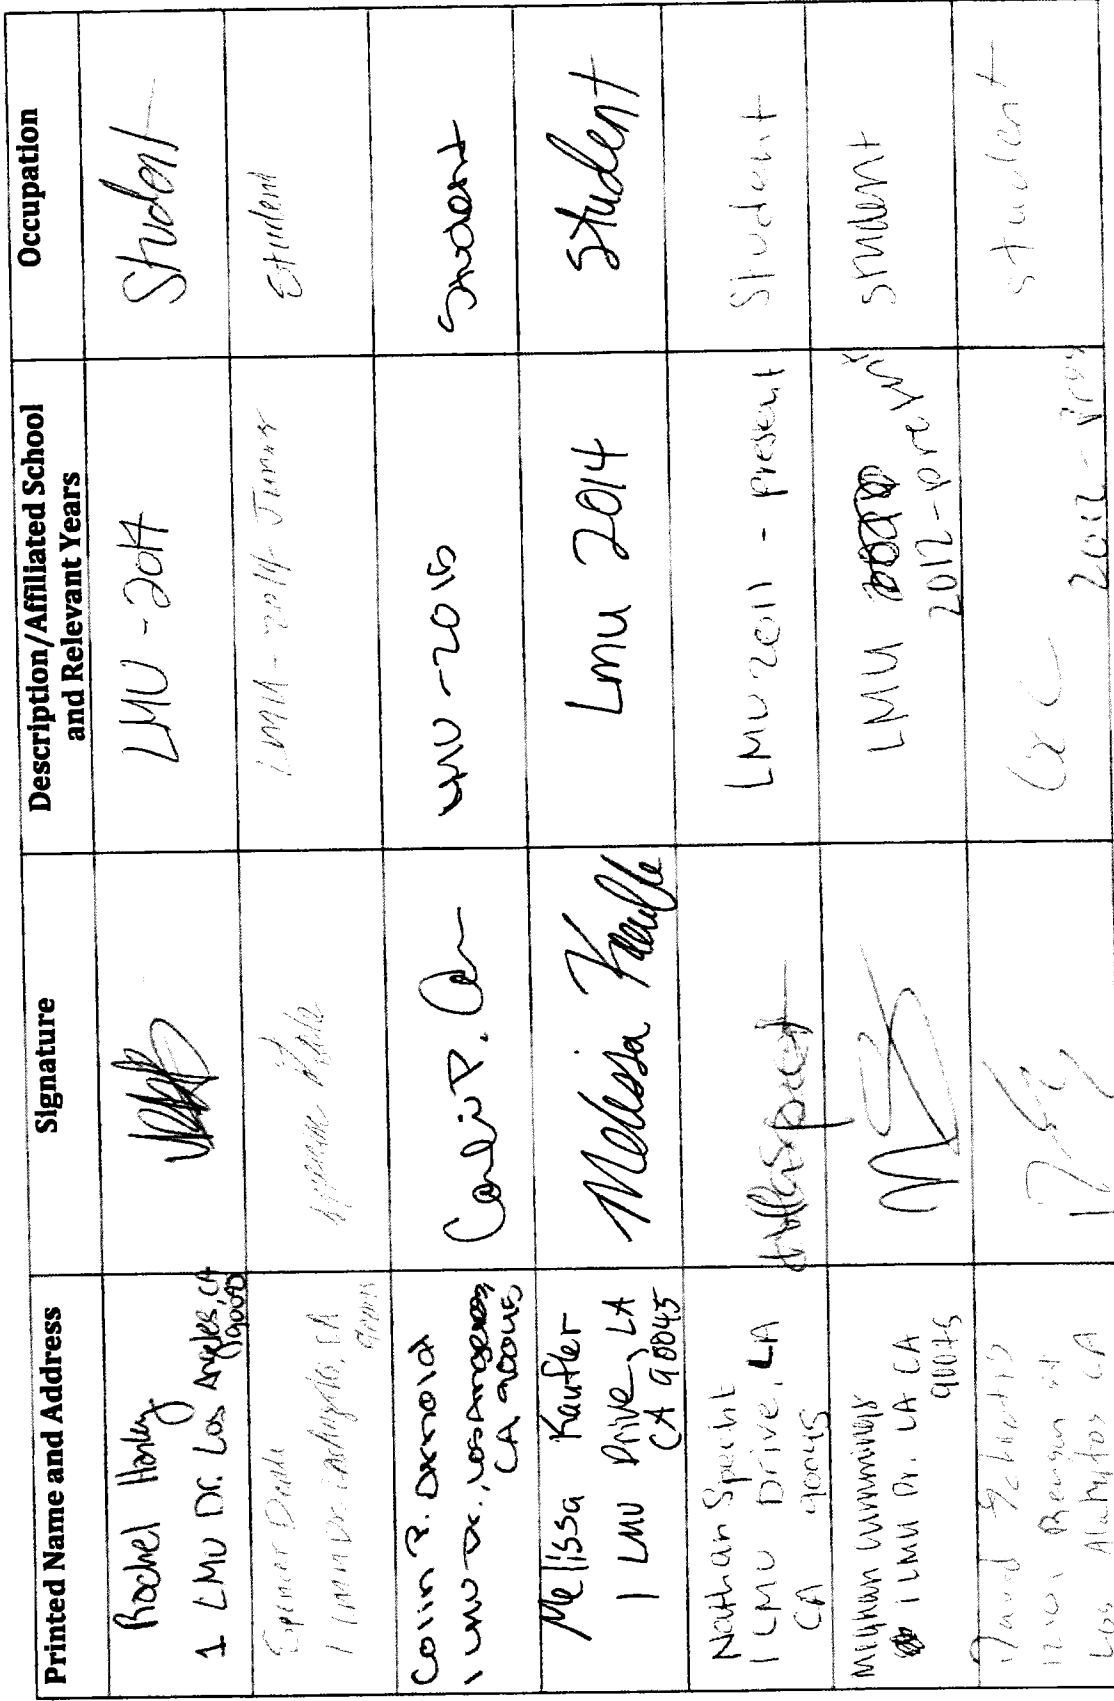 Printed Name and Address
Signature
Description/Affiliated School
and Relevant Years
Occupation
Rachel Hanley
1 LMU Dr. Los Angeles, CA
LMU - 2014
Student
Spencer
1 LMU Dr. Los Angeles, CA
LMU - 2014
Student
Collin P. Arnold
1 LMU Dr., Los Angeles
CA 90045
LMU - 2016
Student
Melissa Kaufler
1 LMU Drive, LA
CA 90045
Melissa
LMU 2014
Student
Nathan Specht
1 LMU Drive, LA
CA 90045
LMU 2011 - Present
Student
Meghan Cummings
1 LMU Dr. LA CA
LMU
2012 - present
student
David
Los Alamitos CA
2012 -
student